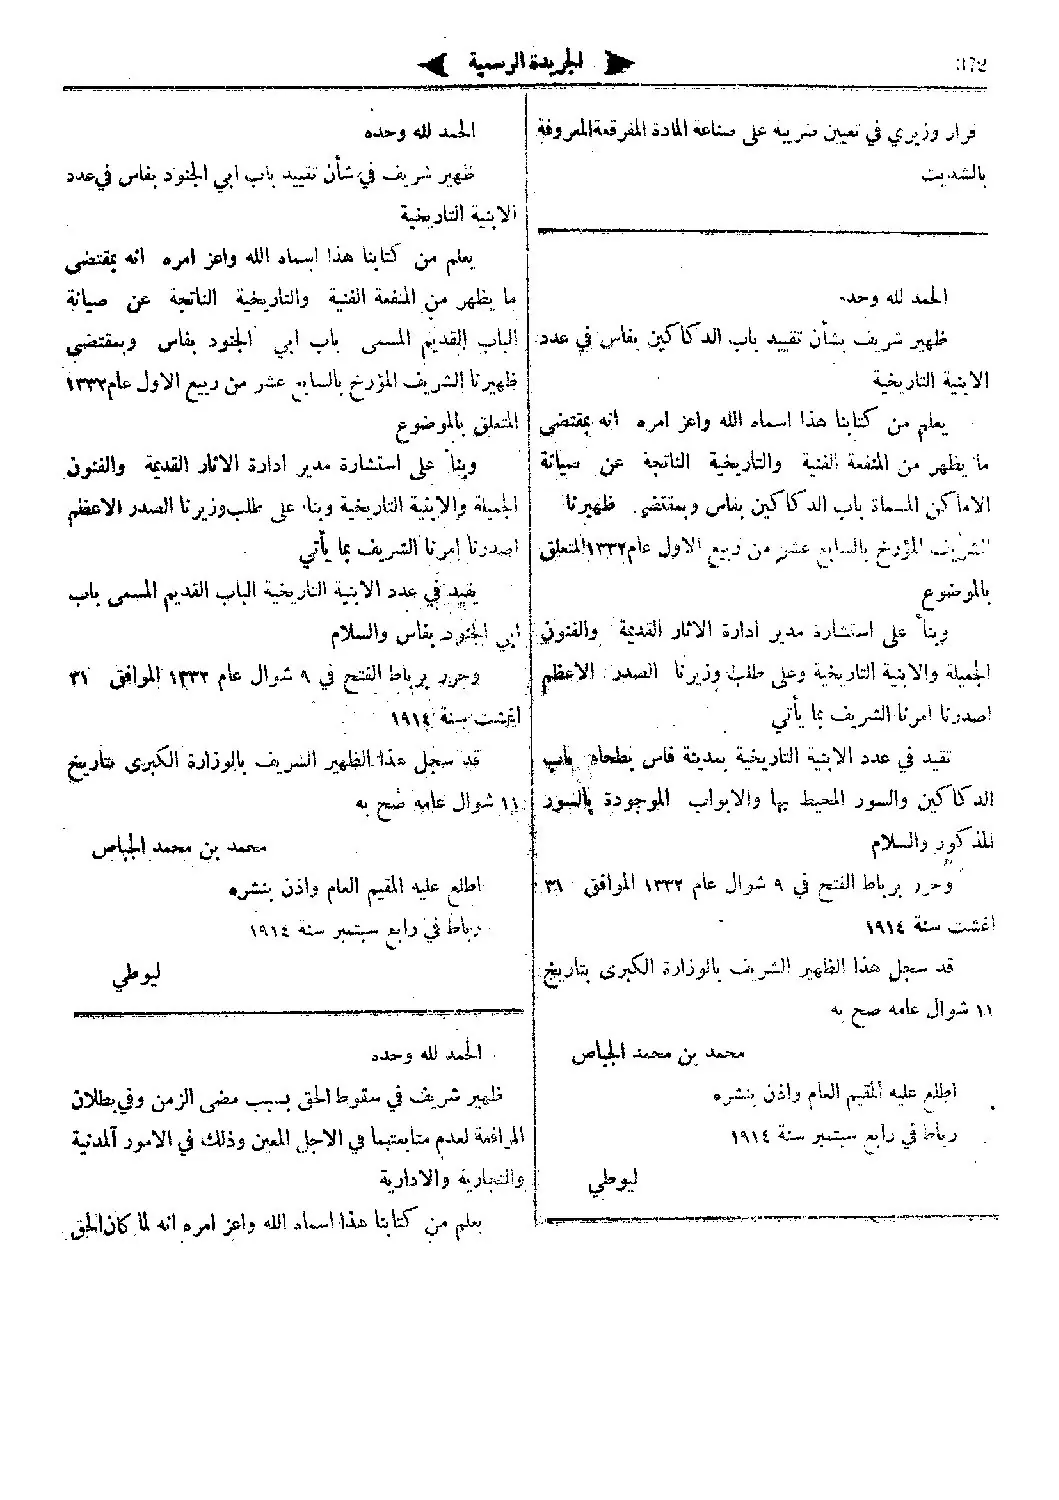 372
الجريدة الرسمية
قرار وزيري في تعيين ضريبة على صناعة المادة المفرقعة المعروفة
بالشديت
الحمد لله وحده
ظهير شريف بشأن تقييد باب الدكاكين بفاس في عدد
الابنية التاريخية
يعلم من كتابنا هذا اسماه الله واعز امره انه بمقتضى
ما يظهر من المنفعة الفنية والتاريخية الناتجة عن صيانة
الاماكن المسماة باب الدكاكين بفاس وبمقتضى ظهيرنا
الشريف المؤرخ بالسابع عشر من ربيع الاول عام ١٣٣٢ المتعلق
بالموضوع
وبناً على استشارة مدير ادارة الاثار القديمة والفنون
الجميلة والابنية التاريخية وعلى طلب وزيرنا الصدر الاعظم
اصدرنا امرنا الشريف بما يأتي
تقيد في عدد الابنية التاريخية بمدينة فاس بطحاء باب
الدكاكين والسور المحيط بها والابواب الموجودة بالسور
المذكور والسلام
وحرر برباط الفتح في ٩ شوال عام ١٣٣٢ الموافق ٣١
اغشت سنة ١٩١٤
قد سجل هذا الظهير الشريف بالوزارة الكبرى بتاريخ
١١ شوال عامه صح به
محمد بن محمد الجباص
اطلع عليه المقيم العام واذن بنشره
رباط في رابع سبتمبر سنة ١٩١٤
ليوطي
الحمد لله وحده
ظهير شريف في شأن تقييد باب ابي الجنود بفاس في عدد
الابنية التاريخية
يعلم من كتابنا هذا اسماه الله واعز امره انه بمقتضى
ما يظهر من المنفعة الفنية والتاريخية الناتجة عن صيانة
الباب القديم المسمى باب ابي الجنود بفاس وبمقتضى
ظهيرنا الشريف المؤرخ بالسابع عشر من ربيع الاول عام ١٣٣٢
المتعلق بالموضوع
وبناً على استشارة مدير ادارة الاثار القديمة والفنون
الجميلة والابنية التاريخية وبناء على طلب وزيرنا الصدر الاعظم
اصدرنا امرنا الشريف بما يأتي
يقيد في عدد الابنية التاريخية الباب القديم المسمى باب
ابي الجنود بفاس والسلام
وحرر برباط الفتح في ٩ شوال عام ١٣٣٢ الموافق ٣١
اغشت سنة ١٩١٤
قد سجل هذا الظهير الشريف بالوزارة الكبرى بتاريخ
١١ شوال عامه صح به
محمد بن محمد الجباص
اطلع عليه المقيم العام واذن بنشره
رباط في رابع سبتمبر سنة ١٩١٤
ليوطي
الحمد لله وحده
ظهير شريف في سقوط الحق بسبب مضى الزمن وفي بطلان
المرافعة لعدم متابعتها في الاجل المعين وذلك في الامور المدنية
والتجارية والادارية
يعلم من كتابنا هذا اسماه الله واعز امره انه لما كان الحق